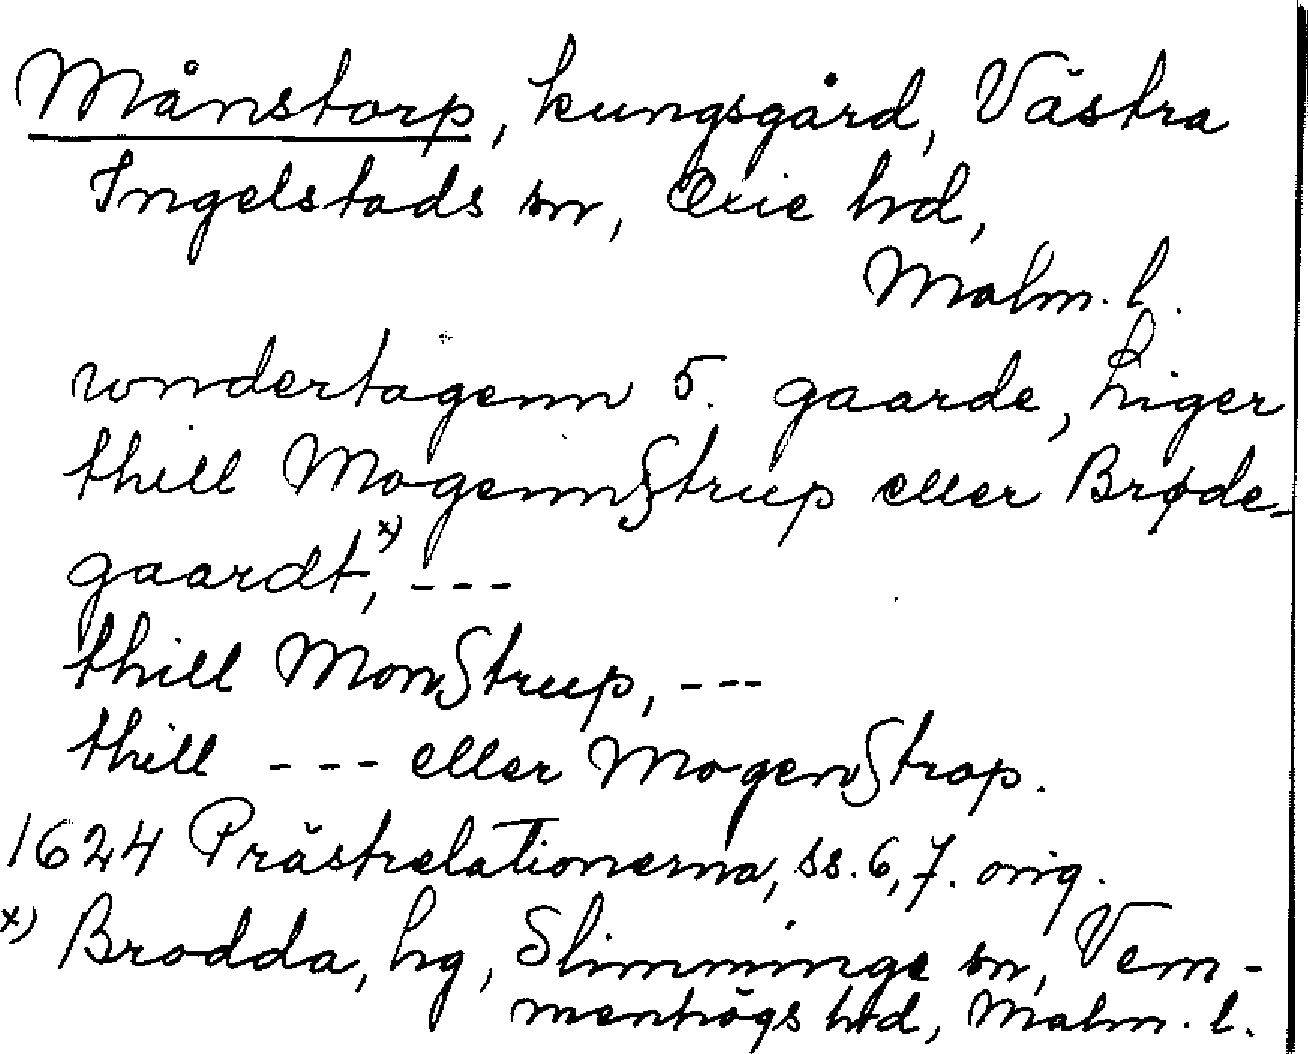 Månstorp, kungsgård, Västra
Ingelstads sn, Oxie hrd,
Malm. l.
wndertagenn 5. gaarde, Liger
thill MogennStrup eller Brøde-
gaardt,x) ---
thill MonStrup, ---
thill --- eller MogenStrop.
1624 Prästrelationerna, ss. 6, 7. orig.
x) Brodda, hg, Slimminge sn, Vem-
menhögs hrd, Malm. l.